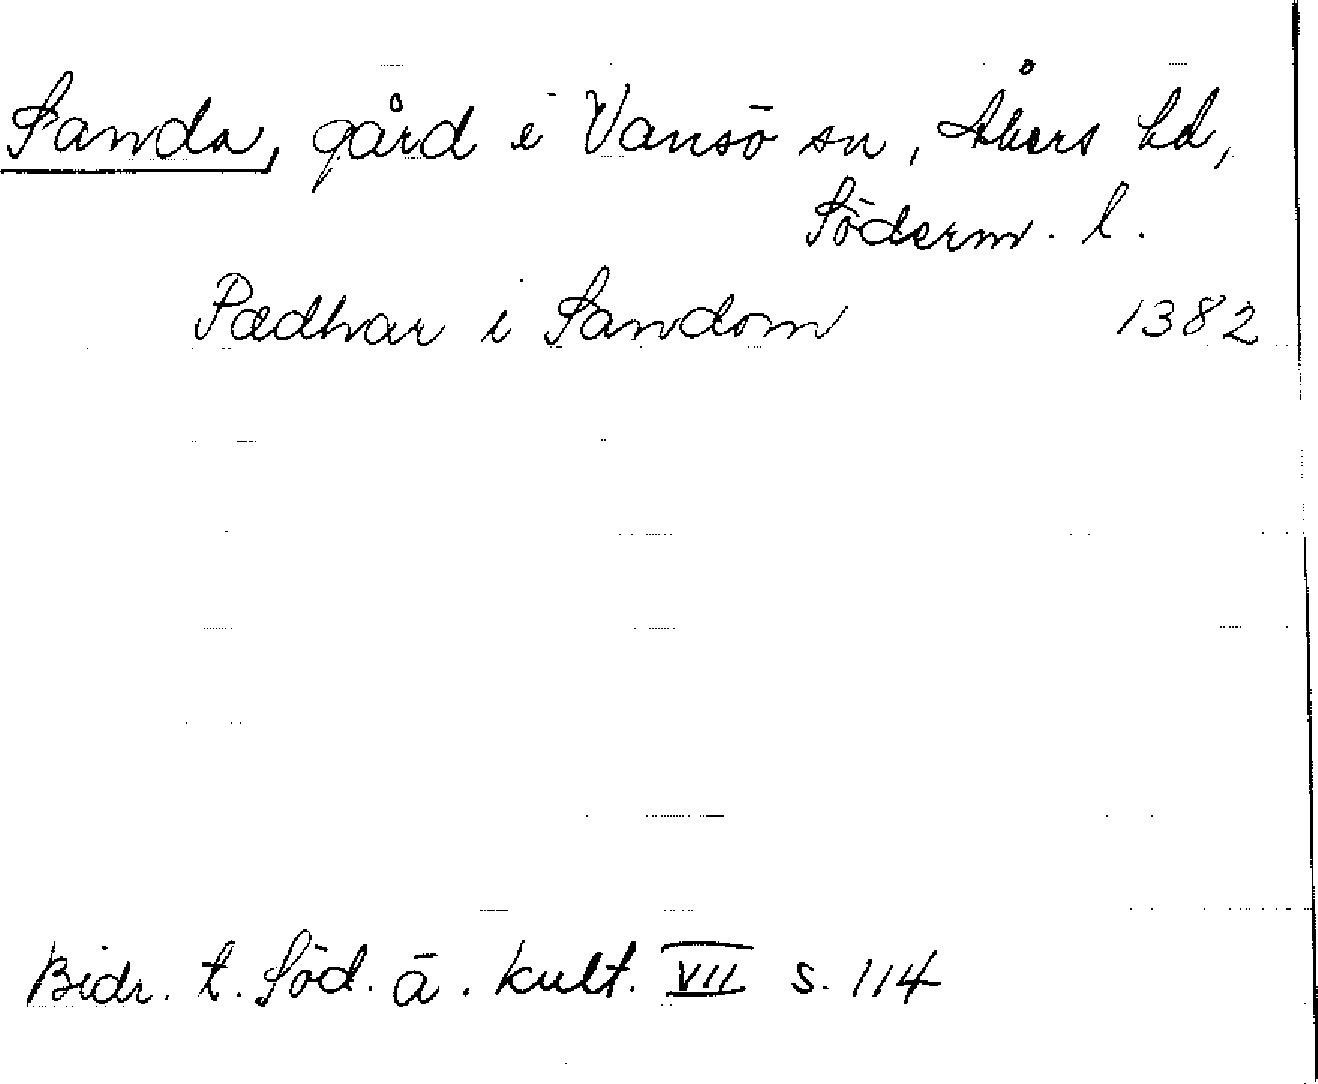 Sanda, gård i Vansö sn, Åkers hd,
Söderm. l.
Pædhar i Sandom 1382
Bidr. t. Söd. ä. kult. VII s. 114